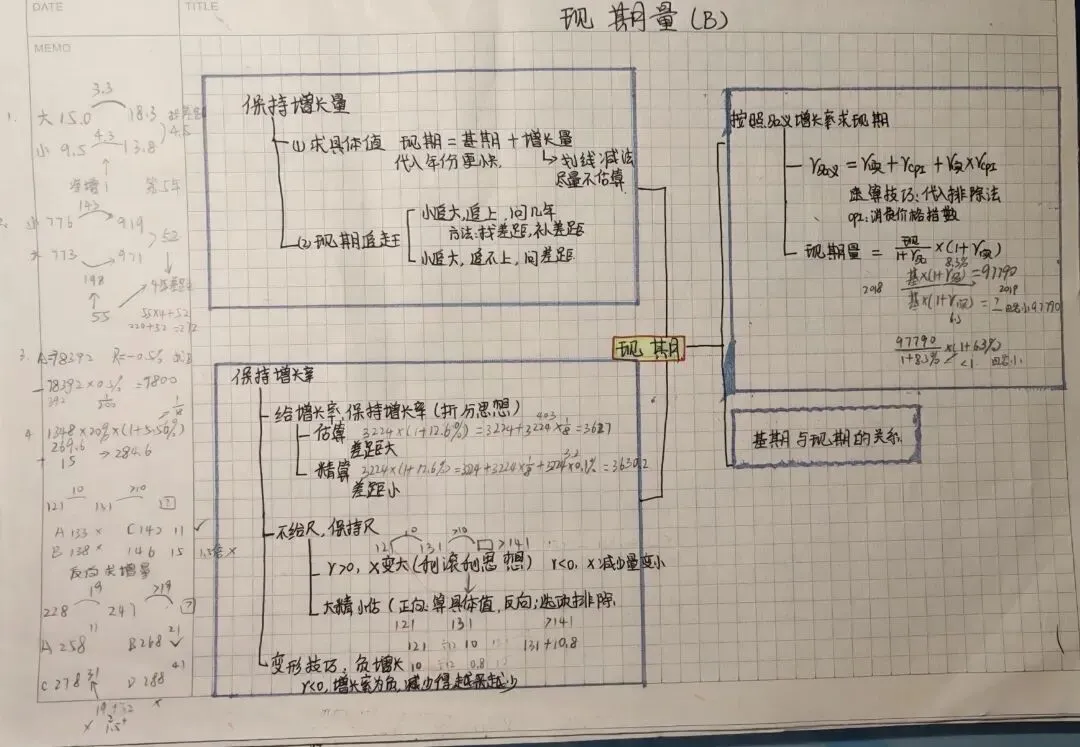 DATE
TITLE
现期量(B)
MEMO
3.3
1. 大 15.0 18.3
4.3 4.5
小 9.5 13.8
第5年
143
小 776 919
52
大 773 971
198
55
55×4+52
220+52=272
3. A=78392 R=-0.5%
-78392×0.5%
392
4 1348×20%×(1+5.50%)
269.6
+ 15 → 284.6
10 >10
121 131 ?
A 133 × C 142 11 ✓
B 138 × 146 15 1.5倍 ×
反向求增量
19 >19
228 247 ?
11 21
A 258 B 268 ✓
31 41
C 278 D 288
×
保持增长量
(1) 求具体值 现期=基期+增长量
代入年份更快. ↳划线减法
尽量不估算
(2) 现期追赶
小追大,追上,问几年
方法:找差距,补差距
小追大,追不上,问差距.
现 期
保持增长率
给增长率,保持增长率(拆分思想)
403
估算 3224×(1+12.6%)=3224+3224×1/8=3627
差距大
3.2
精算 3224×(1+12.6%)=3224+3224×1/8+3224×0.1%=3630.2
差距小
不给R,保持R
10 >10
121 131 □ >141
r>0, X变大(利滚利思想) r<0, X减少量变小
大精小估(正向:算具体值,反向:选项排除.
121 131 >141
121 ÷12 10 131+10.8
10 ÷12 0.8
变形技巧,负增长
r<0,增长率为负,减少得越来越少
按照名义增长率求现期
r名义=r实+rCPI+r实×rCPI
速算技巧:代入排除法
CPI:消费价格指数
现期量=现/1+r名×(1+r实)
8.3%
2018 基×(1+r名)=97790 2019
基×(1+r实)=?
6.3
97790/1+8.3%×(1+6.3%)
<1
基期与现期的关系.